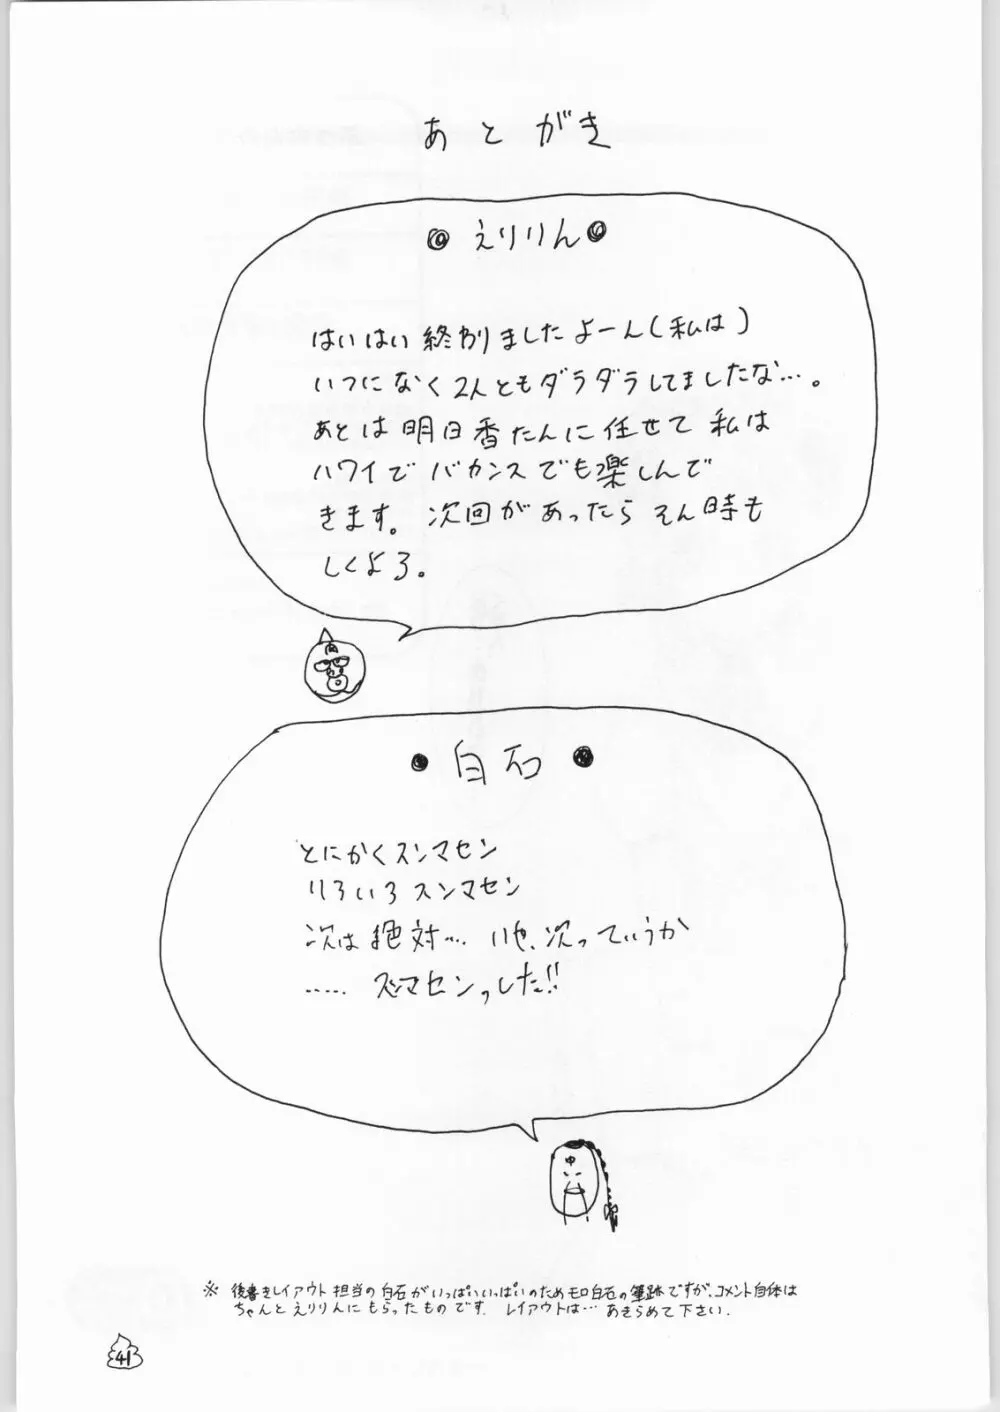 あとがき
えりりん
はいはい終わりましたよーん(私は)
いつになく2人ともダラダラしてましたな…。
あとは明日香たんに任せて私は
ハワイでバカンスでも楽しんで
きます。次回があったらそん時も
しくよろ。
白石
とにかくスンマセン
いろいろスンマセン
次は絶対… いや、次っていうか
…… スンマセンっした!!
※ 後書きレイアウト担当の白石がいっぱいいっぱいのためモロ白石の筆跡ですが、コメント自体は
ちゃんとえりりんにもらったものです。レイアウトは… あきらめて下さい.
41